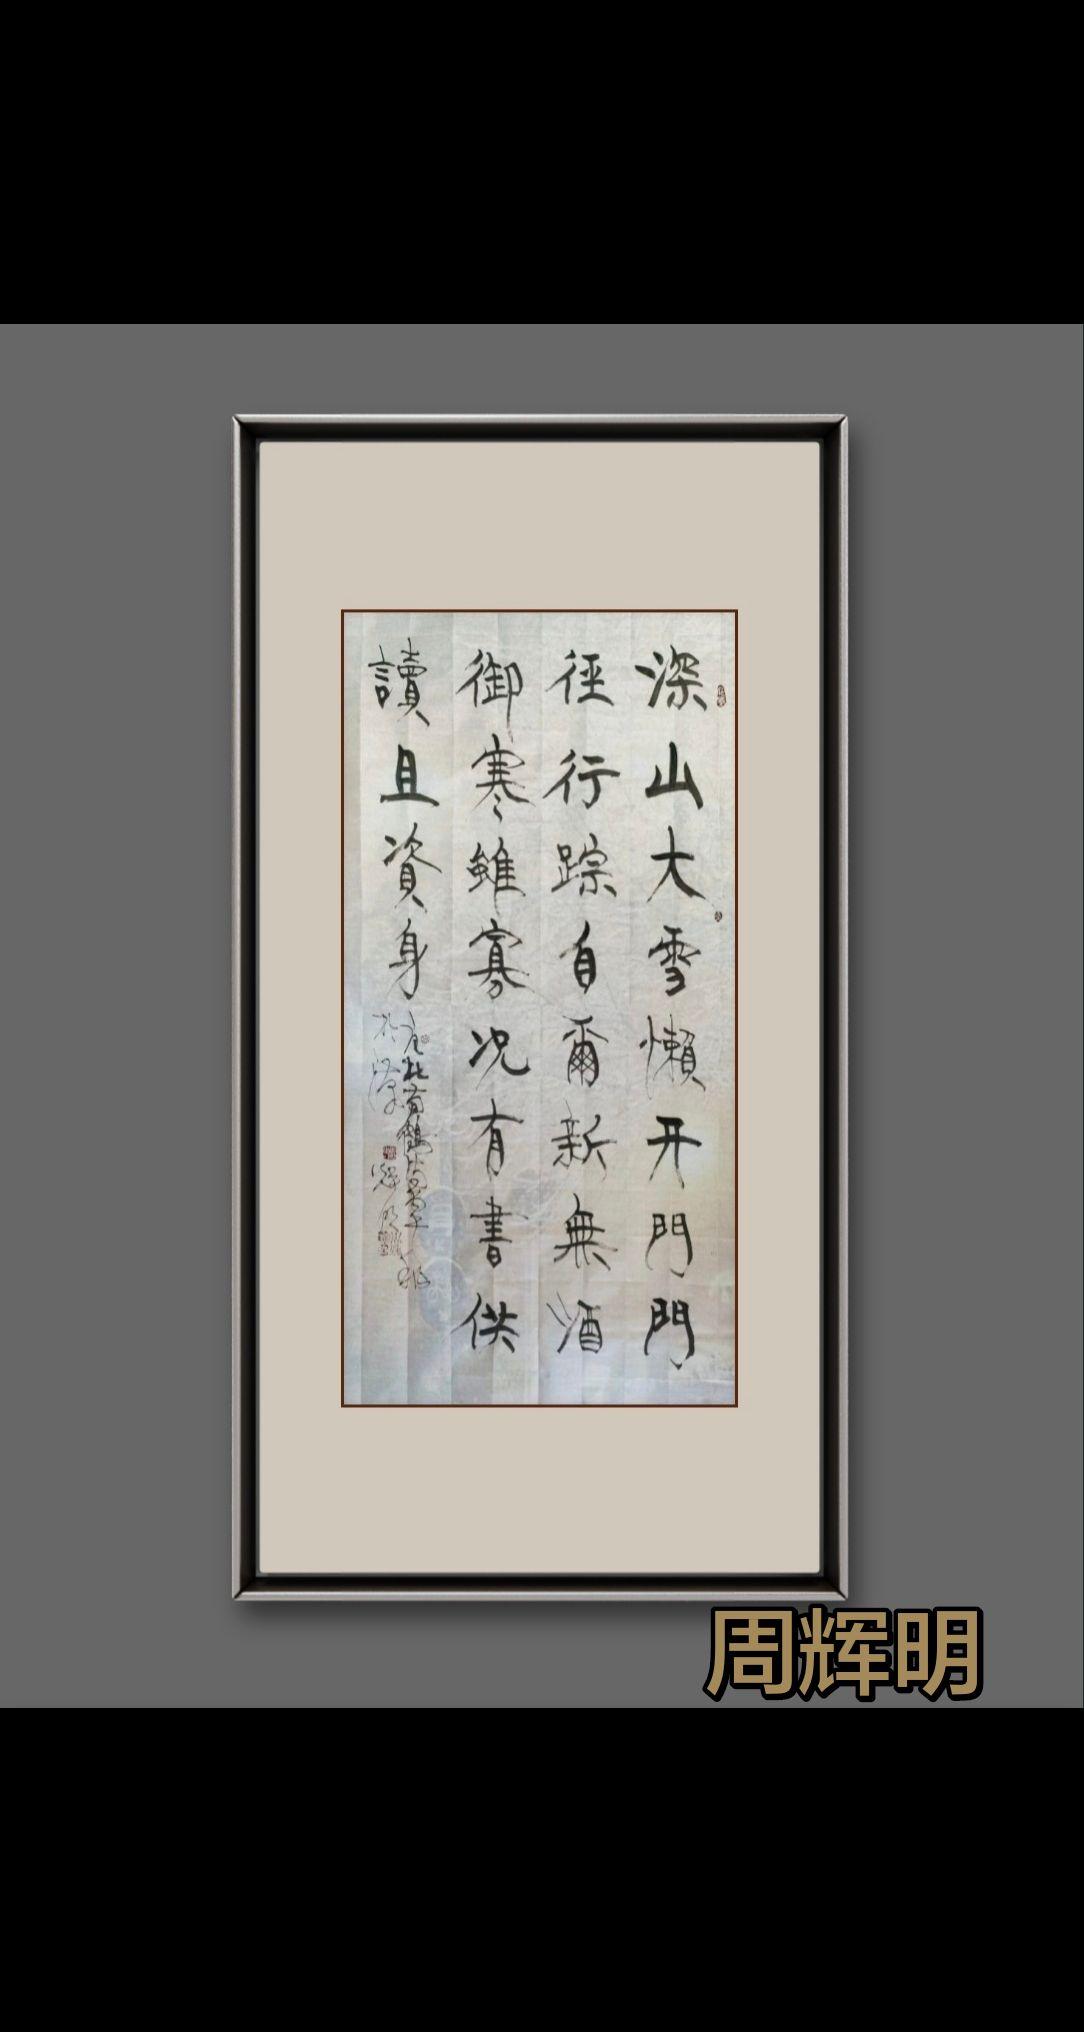 深山大雪懶开門門
徑行踪自爾新無酒
御寒雖寡況有書供
讀且資身
周辉明